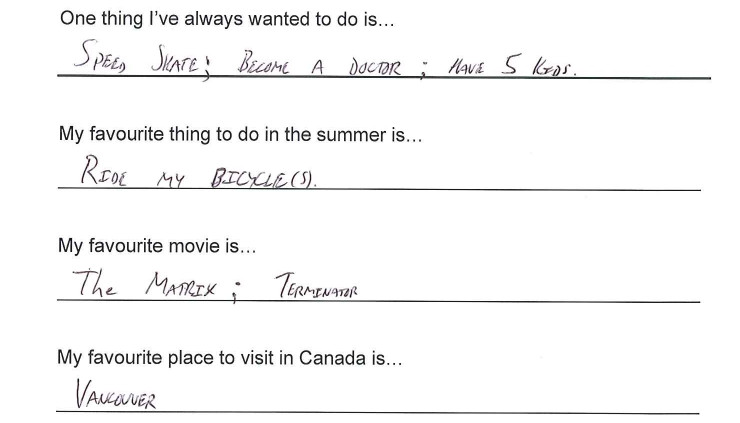 One thing I've always wanted to do is...
SPEED SKATE; BECOME A DOCTOR; HAVE 5 KIDS.
My favourite thing to do in the summer is...
RIDE MY BICYCLE(S).
My favourite movie is...
The MATRIX; TERMINATOR
My favourite place to visit in Canada is...
VANCOUVER